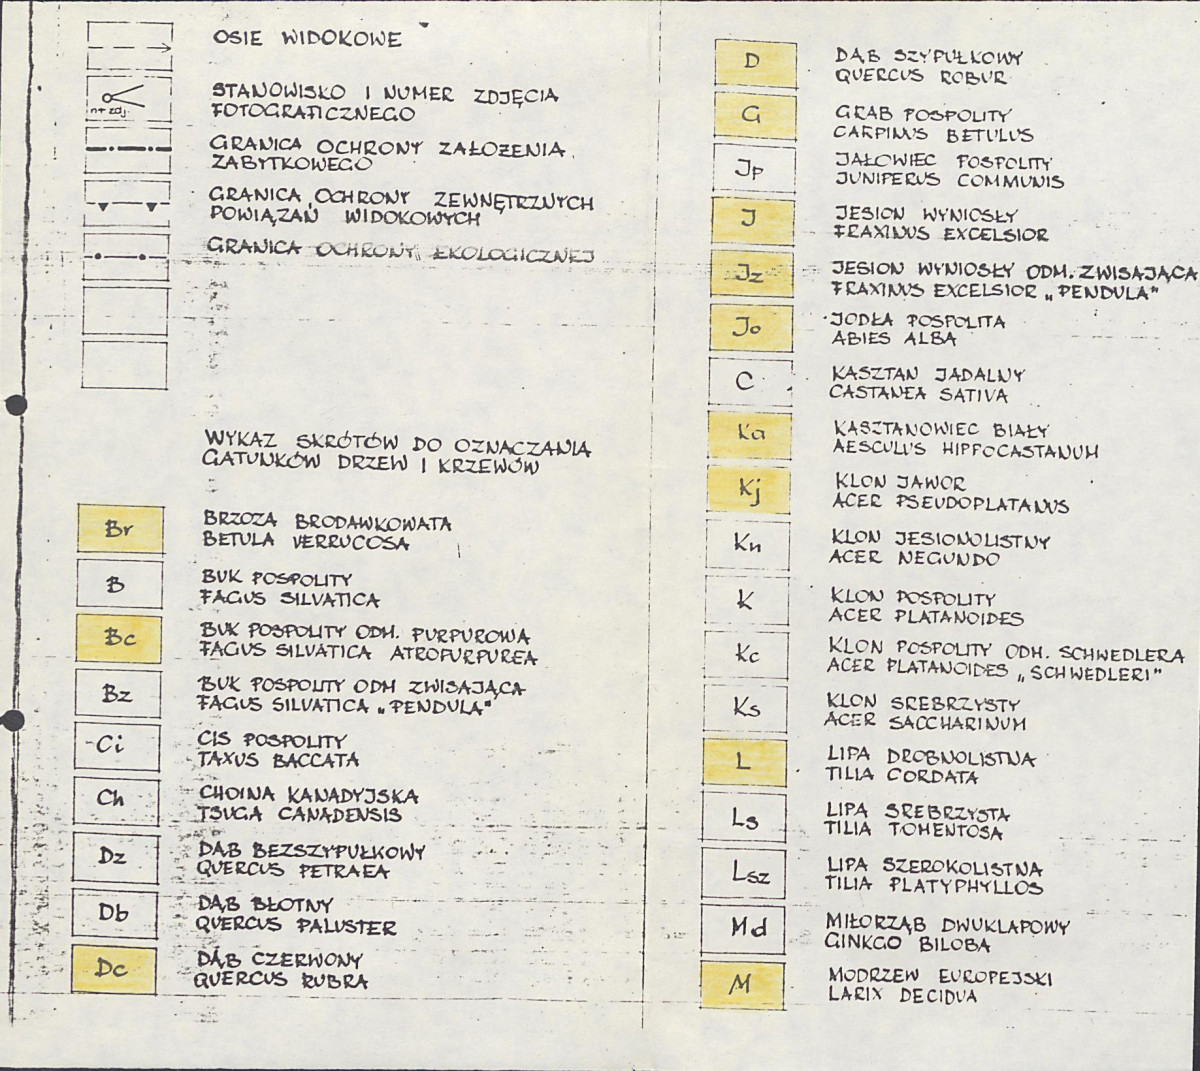 OSIE WIDOKOWE
nr zdj.
STANOWISKO I NUMER ZDJĘCIA
FOTOGRAFICZNEGO
GRANICA OCHRONY ZAŁOŻENIA
ZABYTKOWEGO
GRANICA OCHRONY ZEWNĘTRZNYCH
POWIĄZAŃ WIDOKOWYCH
GRANICA OCHRONY EKOLOGICZNEJ
WYKAZ SKRÓTÓW DO OZNACZANIA
GATUNKÓW DRZEW I KRZEWÓW
Br BRZOZA BRODAWKOWATA
BETULA VERRUCOSA
B BUK POSPOLITY
FAGUS SILVATICA
Bc BUK POSPOLITY ODM. PURPUROWA
FAGUS SILVATICA ATROPURPUREA
Bz BUK POSPOLITY ODM ZWISAJĄCA
FAGUS SILVATICA „PENDULA"
Ci CIS POSPOLITY
TAXUS BACCATA
Ch CHOINA KANADYJSKA
TSUGA CANADENSIS
Dz DĄB BEZSZYPUŁKOWY
QUERCUS PETRAEA
Db DĄB BŁOTNY
QUERCUS PALUSTER
Dc DĄB CZERWONY
QUERCUS RUBRA
D DĄB SZYPUŁKOWY
QUERCUS ROBUR
G GRAB POSPOLITY
CARPINUS BETULUS
Jp JAŁOWIEC POSPOLITY
JUNIPERUS COMMUNIS
J JESION WYNIOSŁY
FRAXINUS EXCELSIOR
Jz JESION WYNIOSŁY ODM. ZWISAJĄCA
FRAXINUS EXCELSIOR „PENDULA"
Jo JODŁA POSPOLITA
ABIES ALBA
C KASZTAN JADALNY
CASTANEA SATIVA
Ka KASZTANOWIEC BIAŁY
AESCULUS HIPPOCASTANUM
Kj KLON JAWOR
ACER PSEUDOPLATANUS
Kn KLON JESIONOLISTNY
ACER NEGUNDO
K KLON POSPOLITY
ACER PLATANOIDES
Kc KLON POSPOLITY ODM. SCHWEDLERA
ACER PLATANOIDES „SCHWEDLERI"
Ks KLON SREBRZYSTY
ACER SACCHARINUM
L LIPA DROBNOLISTNA
TILIA CORDATA
Ls LIPA SREBRZYSTA
TILIA TOMENTOSA
Lsz LIPA SZEROKOLISTNA
TILIA PLATYPHYLLOS
Md MIŁORZĄB DWUKLAPOWY
GINKGO BILOBA
M MODRZEW EUROPEJSKI
LARIX DECIDUA